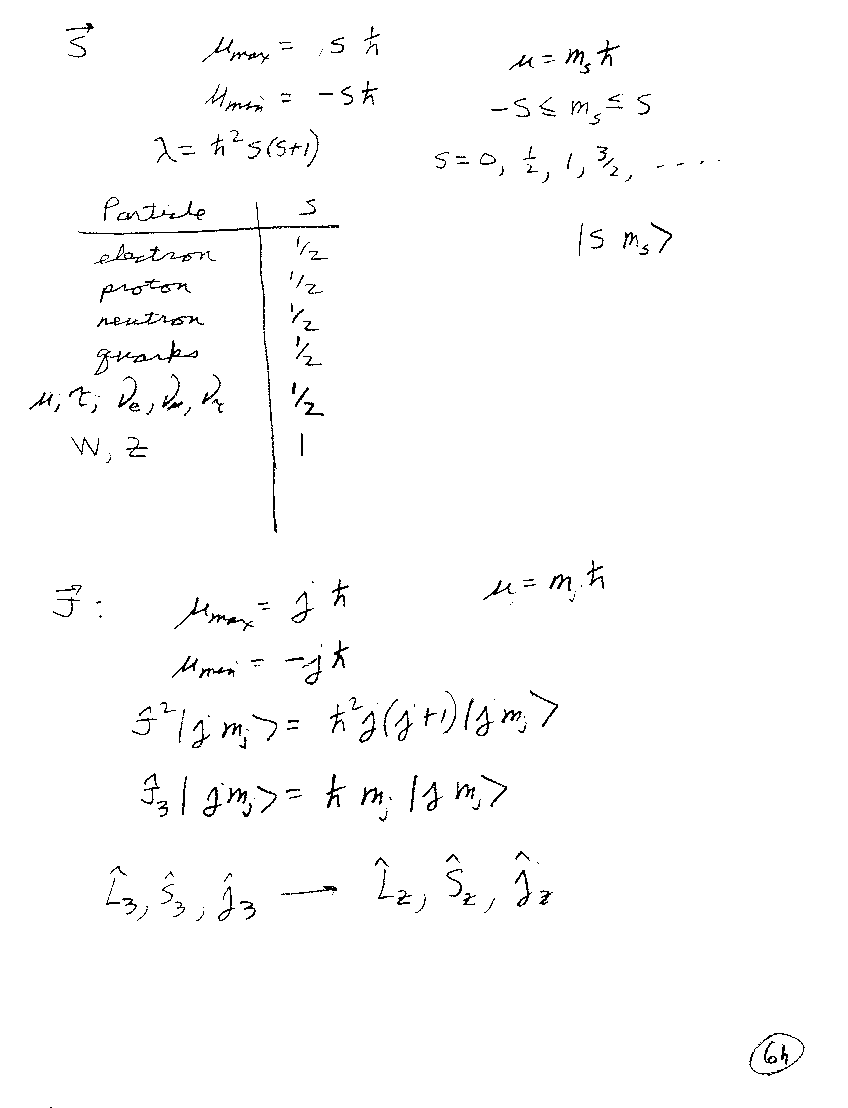 S⃗ μ_max = s ħ μ = m_s ħ
μ_min = -s ħ -s ≤ m_s ≤ s
λ = ħ² s(s+1) s = 0, ½, 1, 3/2, ....
Particle s |s m_s>
electron 1/2
proton 1/2
neutron 1/2
quarks 1/2
μ, τ, ν_e, ν_μ, ν_τ 1/2
W, Z 1
J⃗: μ_max = j ħ μ = m_j ħ
μ_min = -j ħ
Ĵ² |j m_j> = ħ² j(j+1) |j m_j>
Ĵ₃ |j m_j> = ħ m_j |j m_j>
L̂₃, Ŝ₃, ĵ₃ → L̂_z, Ŝ_z, ĵ_z
6h